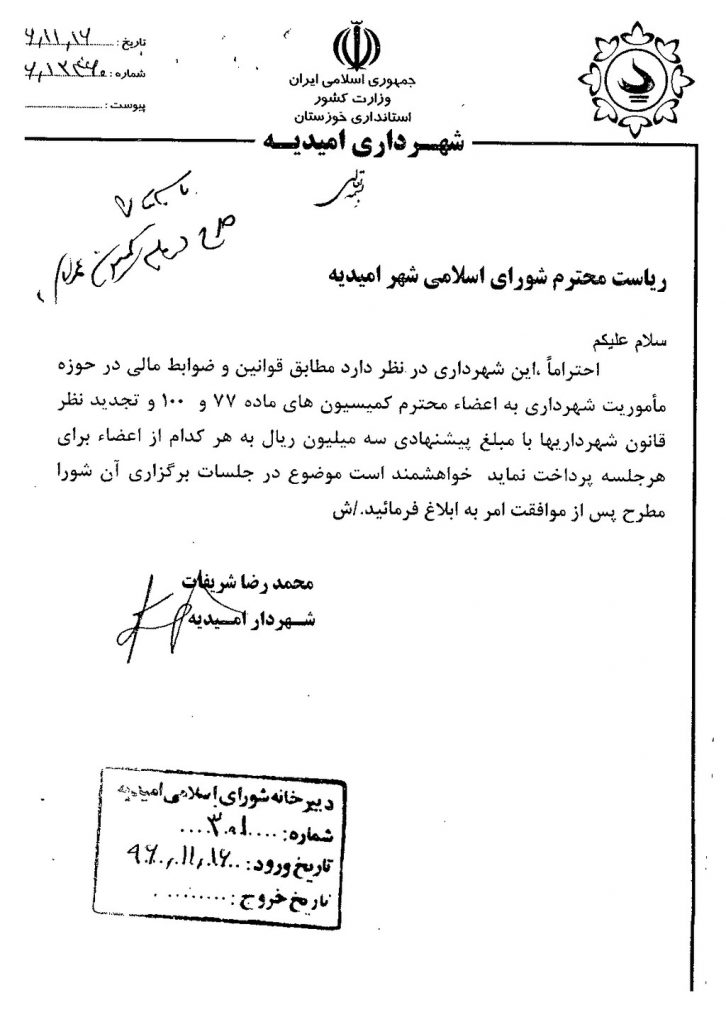 جمهوری اسلامی ایران
وزارت کشور
استانداری خوزستان
شهرداری امیدیه
تاریخ :
شماره :
پیوست :
بسمه تعالی
ریاست محترم شورای اسلامی شهر امیدیه
سلام علیکم
احتراماً ،این شهرداری در نظر دارد مطابق قوانین و ضوابط مالی در حوزه
مأموریت شهرداری به اعضاء محترم کمیسیون های ماده ۷۷ و ۱۰۰ و تجدید نظر
قانون شهرداریها با مبلغ پیشنهادی سه میلیون ریال به هر کدام از اعضاء برای
هرجلسه پرداخت نماید خواهشمند است موضوع در جلسات برگزاری آن شورا
مطرح پس از موافقت امر به ابلاغ فرمائید./ش
محمد رضا شریفات
شهردار امیدیه
دبیرخانه شورای اسلامی امیدیه
شماره:
تاریخ ورود: ۹۶،۱۱،۱۶
تاریخ خروج :